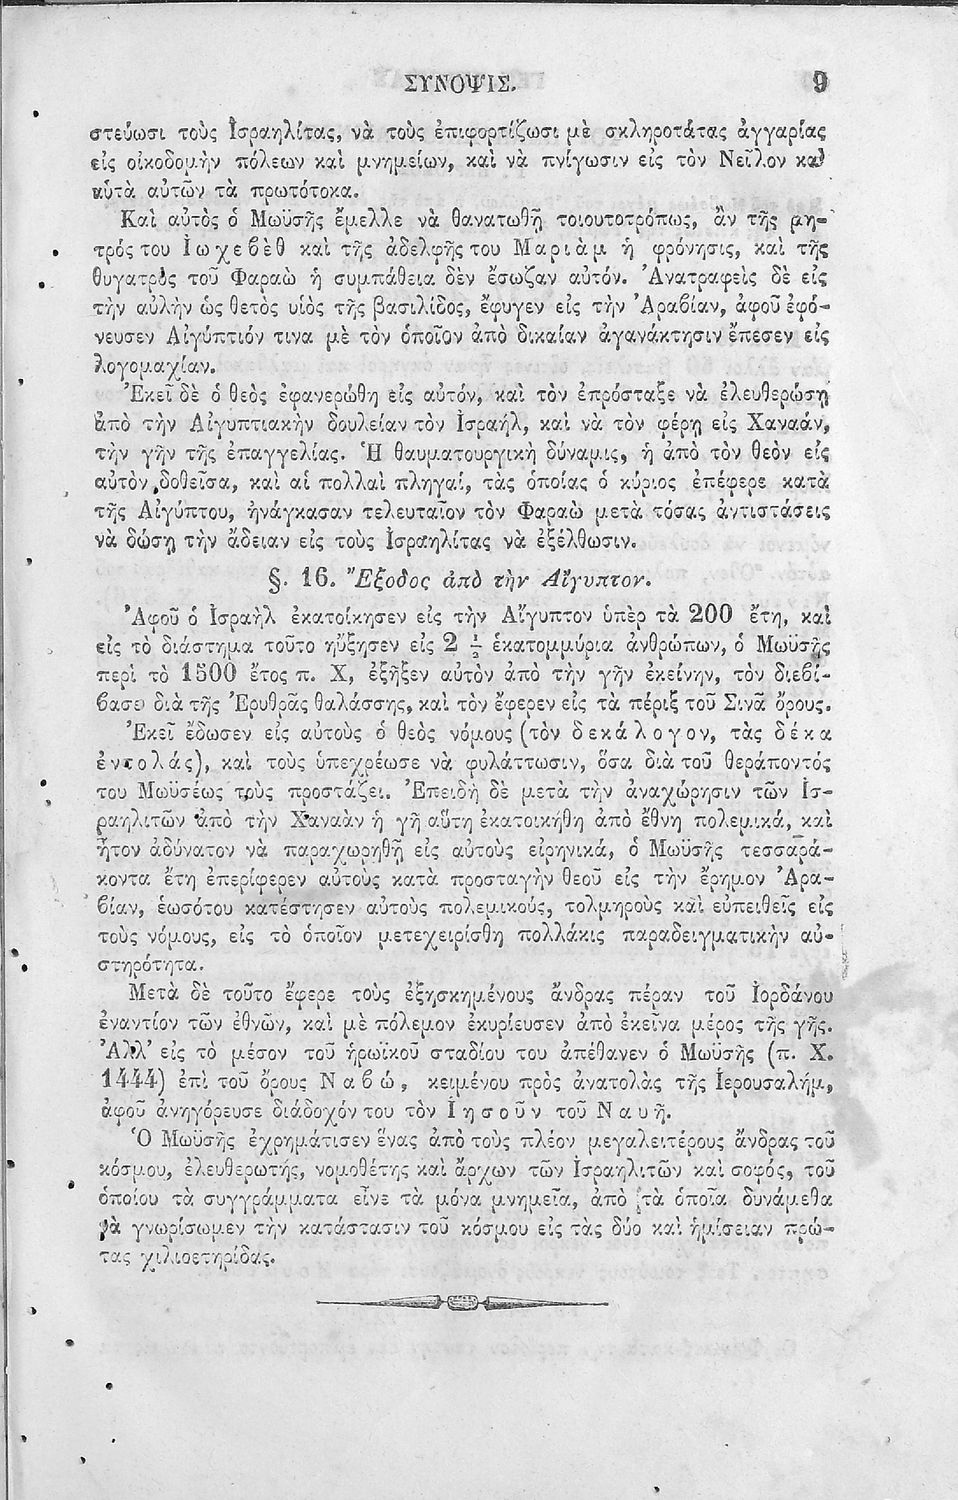 ΣΥΝΟΨΙΣ. 9
στεύωσι τοὺς Ἰσραηλίτας, νὰ τοὺς ἐπιφορτίζωσι μὲ σκληροτάτας ἀγγαρίας
εἰς οἰκοδομὴν πόλεων καὶ μνημείων, καὶ νὰ πνίγωσιν εἰς τὸν Νεῖλον καὶ
αὐτὰ αὐτῶν τὰ πρωτότοκα.
Καὶ αὐτὸς ὁ Μωϋσῆς ἔμελλε νὰ θανατωθῇ τοιουτοτρόπως, ἂν τῆς μη-
τρός του Ἰωχεβὲθ καὶ τῆς ἀδελφῆς του Μαριὰμ ἡ φρόνησις, καὶ τῆς
θυγατρὸς τοῦ Φαραὼ ἡ συμπάθεια δὲν ἔσωζαν αὐτόν. Ἀνατραφεὶς δὲ εἰς
τὴν αὐλὴν ὡς θετὸς υἱὸς τῆς βασιλίδος, ἔφυγεν εἰς τὴν Ἀραβίαν, ἀφοῦ ἐφό-
νευσεν Αἰγύπτιόν τινα μὲ τὸν ὁποῖον ἀπὸ δικαίαν ἀγανάκτησιν ἔπεσεν εἰς
λογομαχίαν.
Ἐκεῖ δὲ ὁ θεὸς ἐφανερώθη εἰς αὐτόν, καὶ τὸν ἐπρόσταξε νὰ ἐλευθερώσῃ
ἀπὸ τὴν Αἰγυπτιακὴν δουλείαν τὸν Ἰσραήλ, καὶ νὰ τὸν φέρῃ εἰς Χαναάν,
τὴν γῆν τῆς ἐπαγγελίας. Ἡ θαυματουργικὴ δύναμις, ἡ ἀπὸ τὸν θεὸν εἰς
αὐτὸν δοθεῖσα, καὶ αἱ πολλαὶ πληγαί, τὰς ὁποίας ὁ κύριος ἐπέφερε κατὰ
τῆς Αἰγύπτου, ἠνάγκασαν τελευταῖον τὸν Φαραὼ μετὰ τόσας ἀντιστάσεις
νὰ δώσῃ τὴν ἄδειαν εἰς τοὺς Ἰσραηλίτας νὰ ἐξέλθωσιν.
§. 16. Ἔξοδος ἀπὸ τὴν Αἴγυπτον.
Ἀφοῦ ὁ Ἰσραὴλ ἐκατοίκησεν εἰς τὴν Αἴγυπτον ὑπὲρ τὰ 200 ἔτη, καὶ
εἰς τὸ διάστημα τοῦτο ηὔξησεν εἰς 2 ½ ἑκατομμύρια ἀνθρώπων, ὁ Μωϋσῆς
περὶ τὸ 1500 ἔτος π. Χ, ἐξῆξεν αὐτὸν ἀπὸ τὴν γῆν ἐκείνην, τὸν διεβί-
βασε διὰ τῆς Ἐρυθρᾶς θαλάσσης, καὶ τὸν ἔφερεν εἰς τὰ πέριξ τοῦ Σινᾶ ὄρους.
Ἐκεῖ ἔδωσεν εἰς αὐτοὺς ὁ θεὸς νόμους (τὸν δεκάλογον, τὰς δέκα
ἐντολάς), καὶ τοὺς ὑπεχρέωσε νὰ φυλάττωσιν, ὅσα διὰ τοῦ θεράποντός
του Μωϋσέως τοὺς προστάζει. Ἐπειδὴ δὲ μετὰ τὴν ἀναχώρησιν τῶν Ἰσ-
ραηλιτῶν ἀπὸ τὴν Χαναὰν ἡ γῆ αὕτη ἐκατοικήθη ἀπὸ ἔθνη πολεμικά, καὶ
ἦτον ἀδύνατον νὰ παραχωρηθῇ εἰς αὐτοὺς εἰρηνικά, ὁ Μωϋσῆς τεσσαρά-
κοντα ἔτη ἐπερίφερεν αὐτοὺς κατὰ προσταγὴν θεοῦ εἰς τὴν ἔρημον Ἀρα-
βίαν, ἑωσότου κατέστησεν αὐτοὺς πολεμικούς, τολμηροὺς καὶ εὐπειθεῖς εἰς
τοὺς νόμους, εἰς τὸ ὁποῖον μετεχειρίσθη πολλάκις παραδειγματικὴν αὐ-
στηρότητα.
Μετὰ δὲ τοῦτο ἔφερε τοὺς ἐξησκημένους ἄνδρας πέραν τοῦ Ἰορδάνου
ἐναντίον τῶν ἐθνῶν, καὶ μὲ πόλεμον ἐκυρίευσεν ἀπὸ ἐκεῖνα μέρος τῆς γῆς.
Ἀλλ' εἰς τὸ μέσον τοῦ ἡρωϊκοῦ σταδίου του ἀπέθανεν ὁ Μωϋσῆς (π. Χ.
1444) ἐπὶ τοῦ ὄρους Ναβώ, κειμένου πρὸς ἀνατολὰς τῆς Ἱερουσαλήμ,
ἀφοῦ ἀνηγόρευσε διάδοχόν του τὸν Ἰησοῦν τοῦ Ναυῆ.
Ὁ Μωϋσῆς ἐχρημάτισεν ἕνας ἀπὸ τοὺς πλέον μεγαλειτέρους ἄνδρας τοῦ
κόσμου, ἐλευθερωτής, νομοθέτης καὶ ἄρχων τῶν Ἰσραηλιτῶν καὶ σοφός, τοῦ
ὁποίου τὰ συγγράμματα εἶνε τὰ μόνα μνημεῖα, ἀπὸ τὰ ὁποῖα δυνάμεθα
νὰ γνωρίσωμεν τὴν κατάστασιν τοῦ κόσμου εἰς τὰς δύο καὶ ἡμίσειαν πρώ-
τας χιλιοετηρίδας.